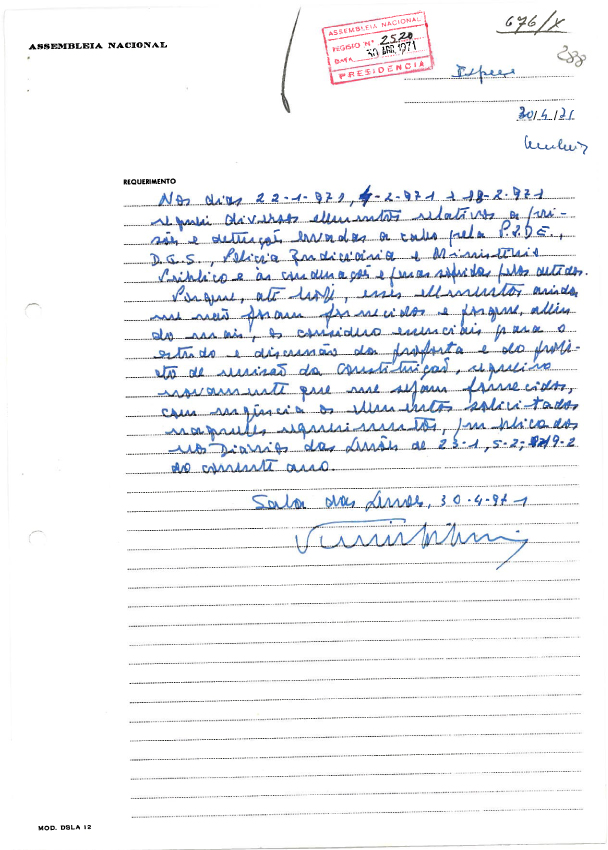 676/X
288
ASSEMBLEIA NACIONAL
ASSEMBLEIA NACIONAL
REGISTO Nº 2520
DATA 30 ABR. 1971
PRESIDÊNCIA
30/4/71
REQUERIMENTO
Nos dias 22-1-971, 4-2-971 e 18-2-971
requeri diversos elementos relativos a pri-
sões e detenções levadas a cabo pela P.I.D.E.,
D.G.S., Polícia Judiciária e Ministério
Público e às condenações e penas sofridas pelos detidos.
Porque, até hoje, esses elementos ainda
me não foram fornecidos e porque, além
do mais, os considero essenciais para o
estudo e discussão da proposta e do projec-
to de revisão da Constituição, requeiro
novamente que me sejam fornecidos,
com urgência os elementos solicitados
naqueles requerimentos, publicados
nos Diários das Sessões de 23-1, 5-2, 19-2
do corrente ano.
Sala das Sessões, 30-4-971
MOD. DSLA 12